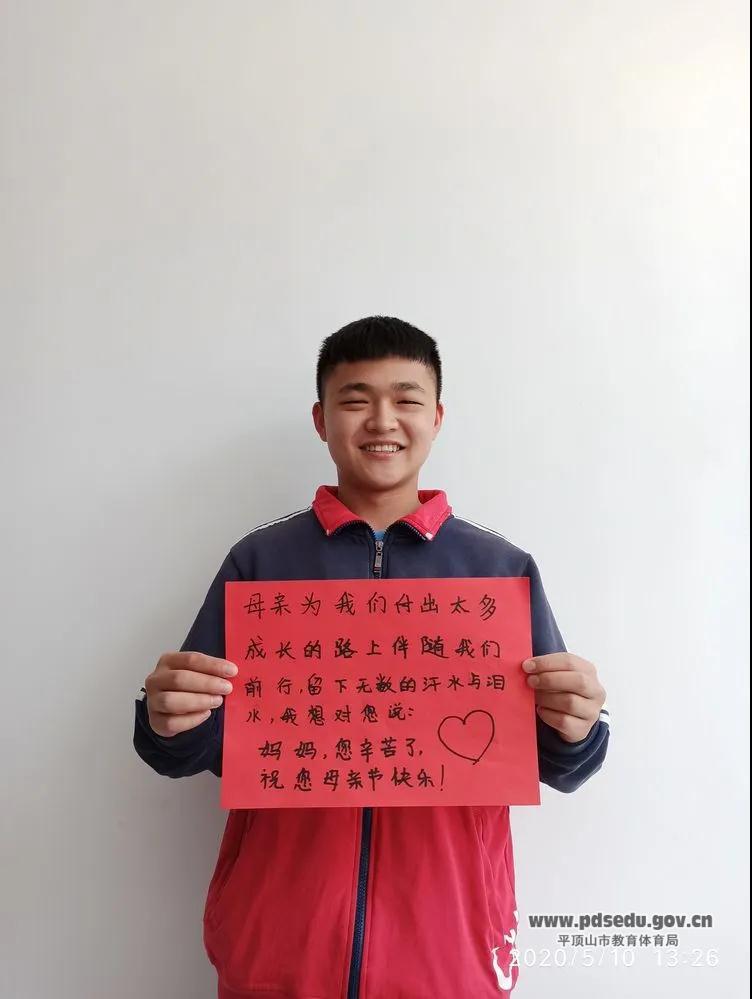 母亲为我们付出太多
成长的路上伴随我们
前行,留下无数的汗水与泪
水,我想对您说:
妈妈,您辛苦了,
祝您母亲节快乐!
www.pdsedu.gov.cn
平顶山市教育体育局
2020/5/10 13:26